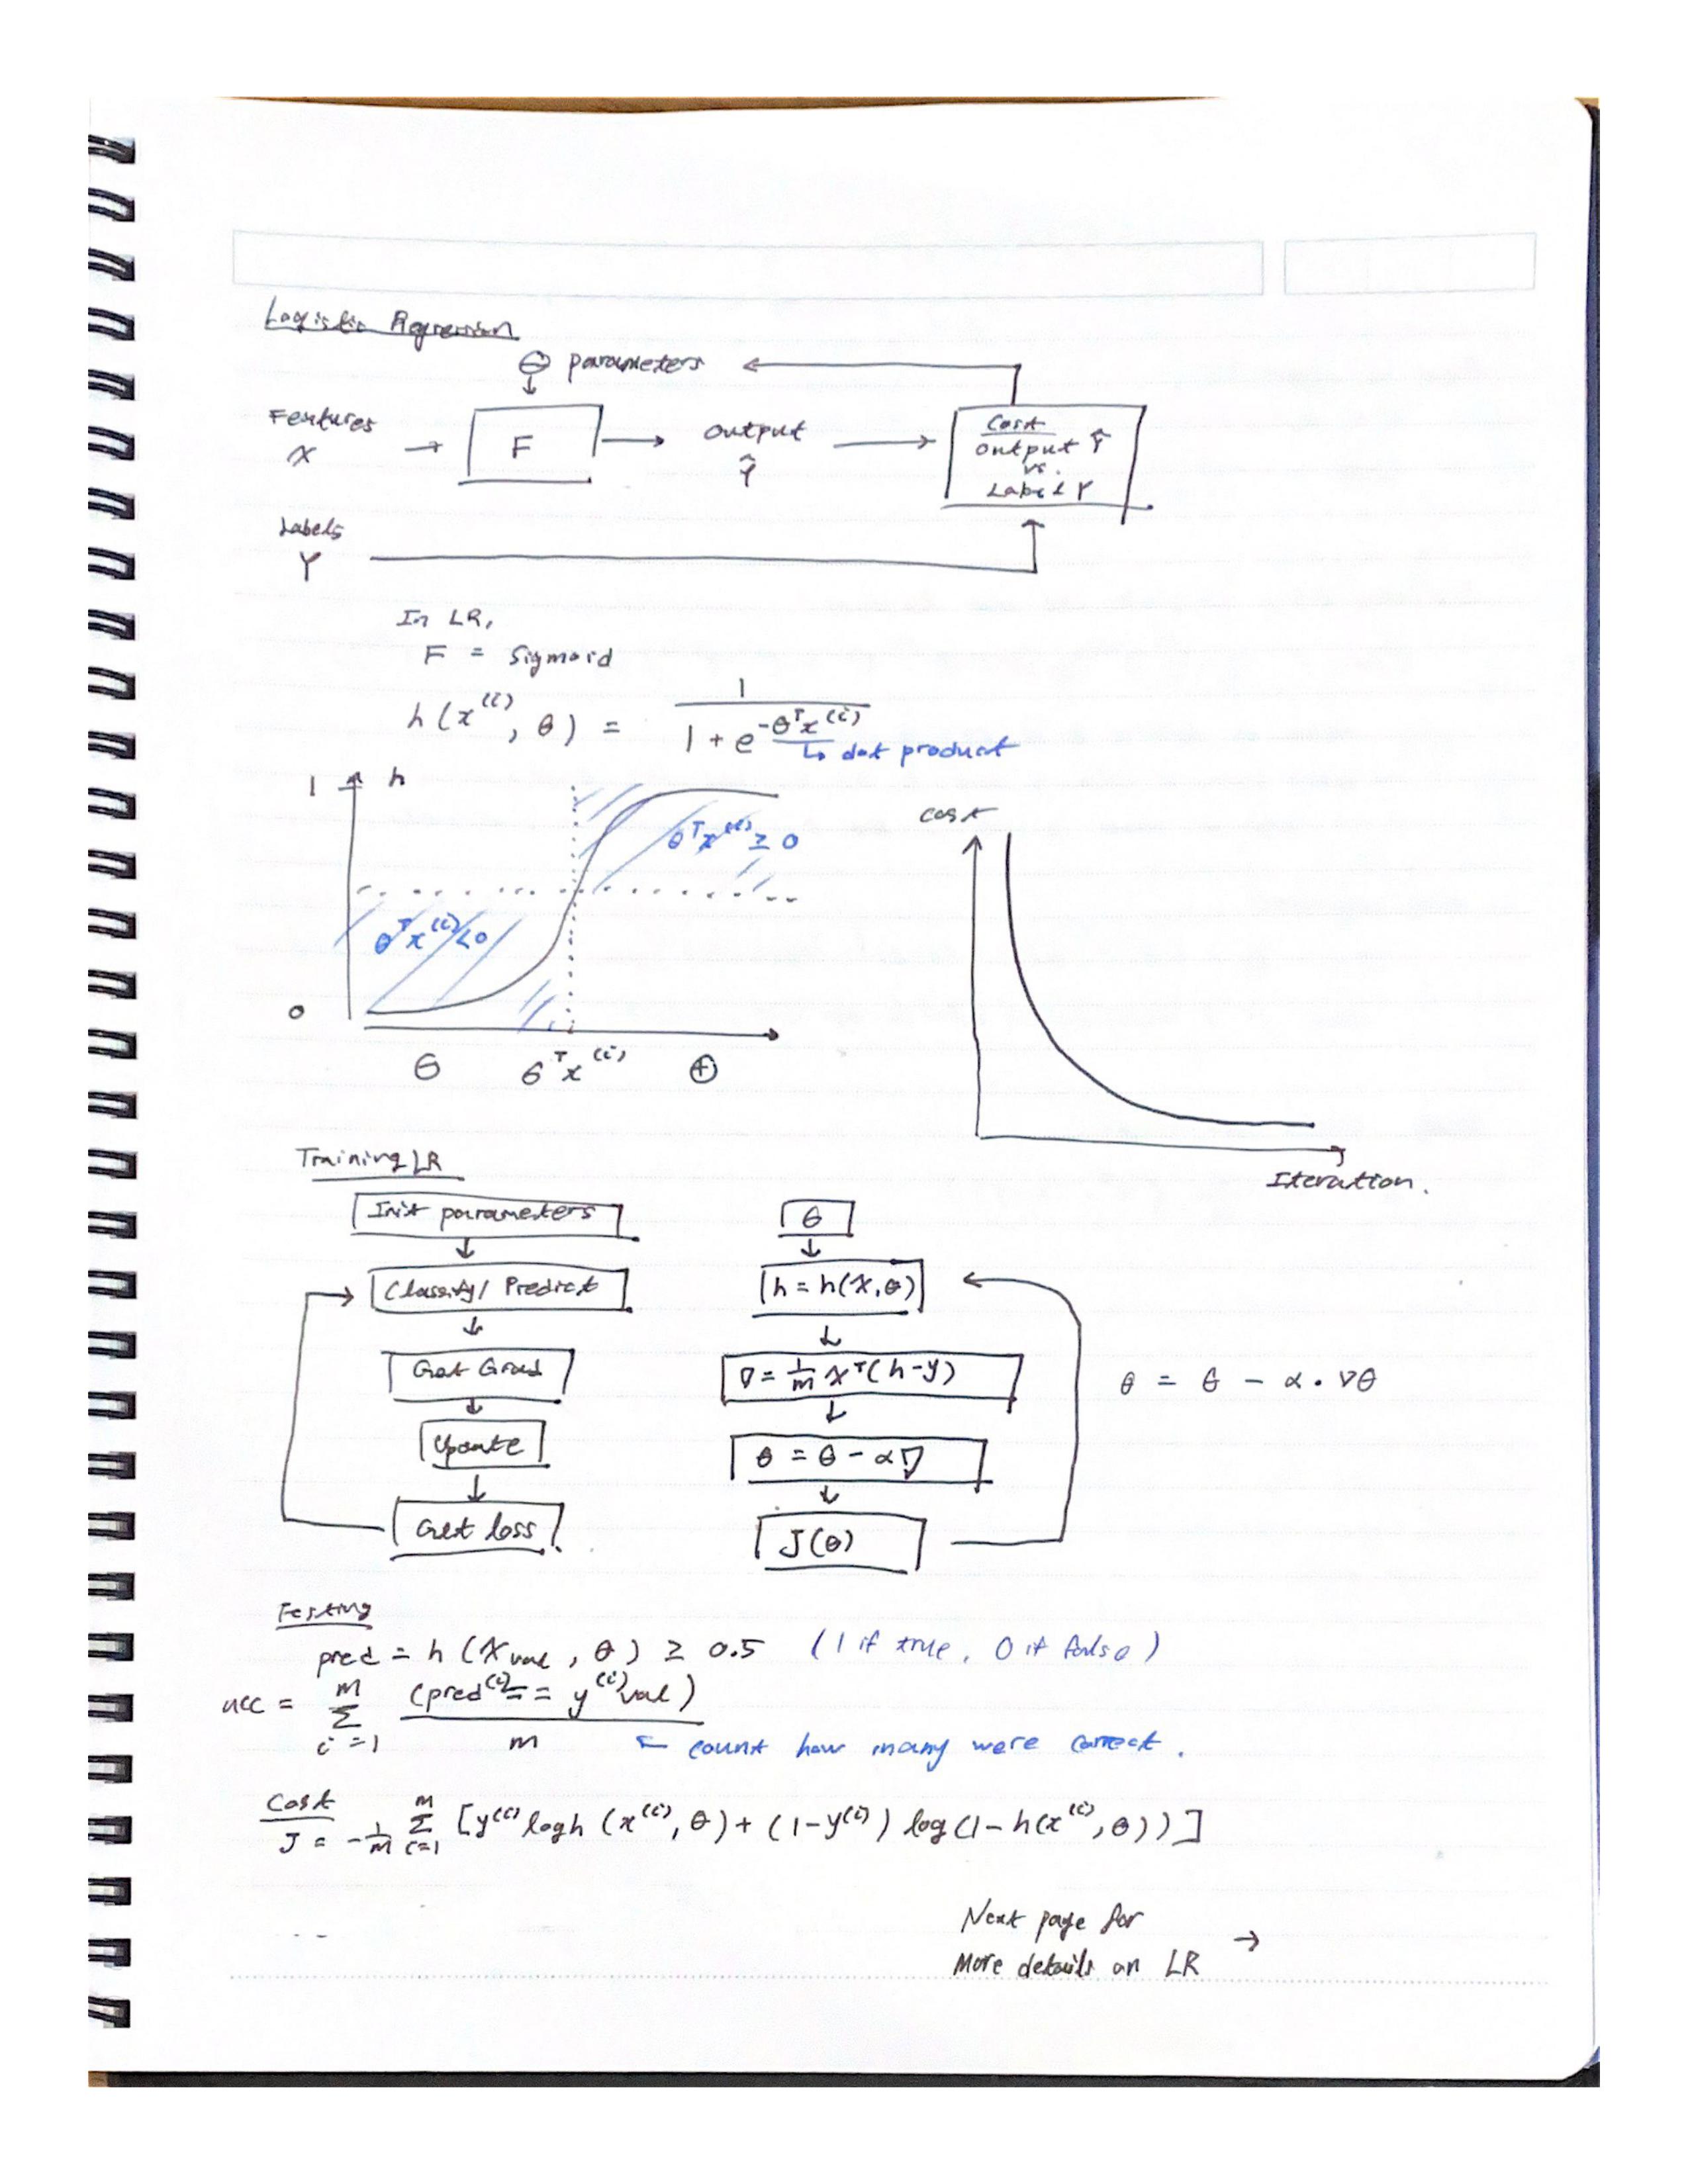 Logistic Regression
θ parameters
Features
X
F
output
Ŷ
Cost
output Ŷ
vs.
Label Y
Labels
Y
In LR,
F = Sigmoid
h(x^(i), θ) = 1 / (1 + e^(-θ^T x^(i)))
↳ dot product
1 h
θ^T x^(i) ≥ 0
θ^T x^(i) < 0
0
⊖ θ^T x^(i) ⊕
cost
Iteration.
Training LR
Init parameters
Classify/ Predict
Get Grad
Update
Get loss
θ
h = h(X, θ)
∇ = 1/m X^T (h - y)
θ = θ - α∇
J(θ)
θ = θ - α • ∇θ
Testing
pred = h (X_val, θ) ≥ 0.5 (1 if true, 0 if false)
acc = Σ_{i=1}^{m} (pred^(i) == y^(i)_val) / m
← count how many were correct.
Cost
J = -1/m Σ_{i=1}^{m} [y^(i) log h (x^(i), θ) + (1-y^(i)) log (1-h(x^(i), θ))]
Next page for
More details on LR →